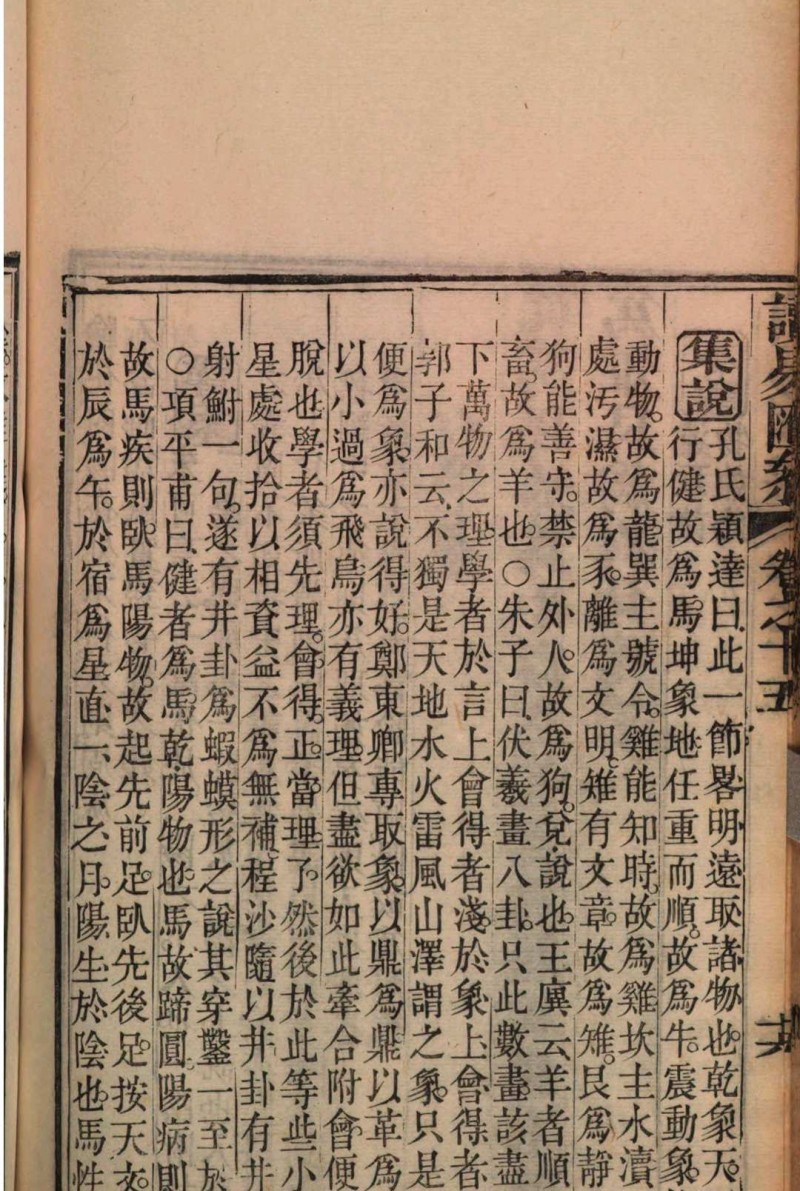 讀易匯叅 卷之十五
集說 孔氏穎達曰此一節畧明遠取諸物也乾象天
行健故爲馬坤象地任重而順故爲牛震動象
動物故爲龍巽主號令雞能知時故爲雞坎主水瀆
處汚濕故爲豕離爲文明雉有文章故爲雉艮爲靜
狗能善守禁止外人故爲狗兌說也王廙云羊者順
畜故爲羊也○朱子曰伏羲畫八卦只此數畫該盡
下萬物之理學者於言上會得者淺於象上會得者
郭子和云不獨是天地水火雷風山澤謂之象只是
便爲象亦說得好鄭東卿專取象以鼎爲鼎以革爲
以小過爲飛鳥亦有義理但盡欲如此牽合附會便
脫也學者須先理會得正當理了然後於此等些小
星處收拾以相資益不爲無補程沙隨以井卦有井
射鮒一句遂有井卦爲蝦蟆形之說其穿鑿一至於
○項平甫曰健者爲馬乾陽物也馬故蹄圓陽病則
故馬疾則臥馬陽物故起先前足臥先後足按天文
於辰爲午於宿爲星直一陰之月陽生於陰也馬性